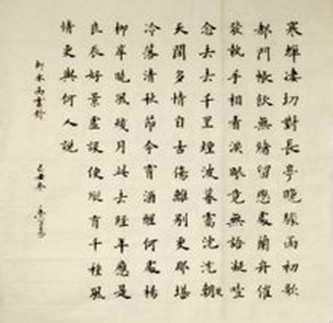 寒蟬凄切對長亭晚驟雨初歇
都門帳飲無緒留戀處蘭舟催
發執手相看淚眼竟無語凝噎
念去去千里煙波暮靄沈沈
天闊多情自古傷離別更那堪
冷落清秋節今宵酒醒何處楊
柳岸曉風殘月此去經年應是
良辰好景虛設便縱有千種風
情更與何人說
柳永雨霖鈴 己丑冬